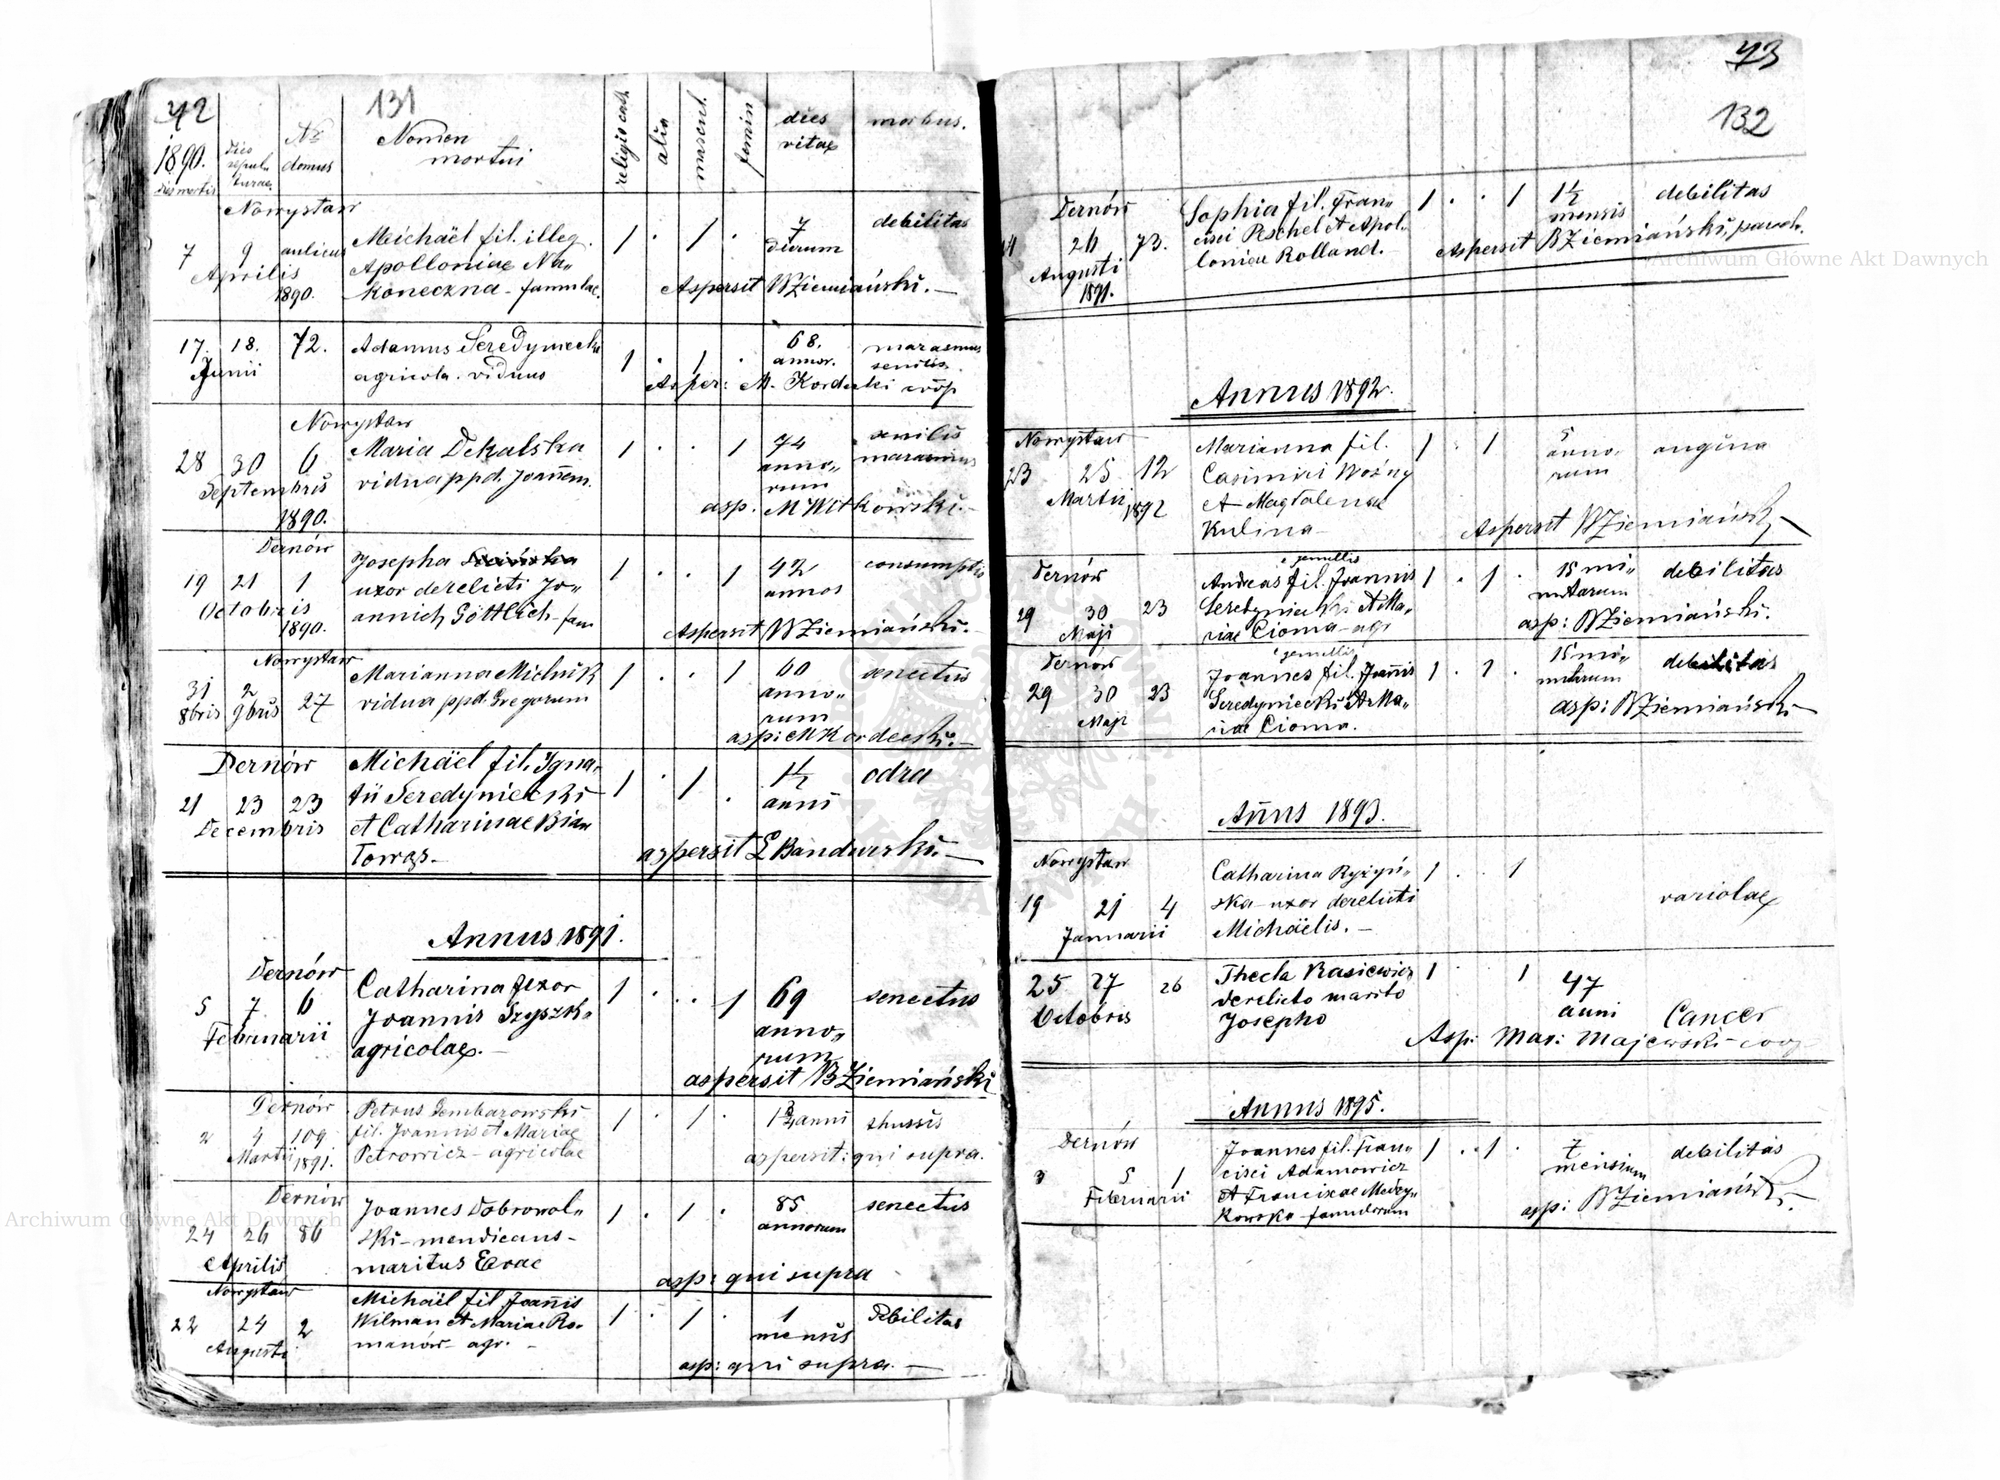 42
131
1890.
dies mortis
dies sepulturae
Nr domus
Nomen mortui
religio cath.
alia
mascul.
femin
dies vitae
morbus.
Nowystaw
7 9 aulicus
Aprilis
1890.
Michäel fil. illeg.
Apolloniae Na-
koneczna - famulae.
1 . 1 .
7
dierum
debilitas
Aspersit BZiemiański.
17. 18. 72.
Junii
Adamus Seredyniecki
agricola. viduus
1 . 1 .
68.
annor.
marasmus
senilis
Asper: M. Kordecki coop
Nowystaw
28 30 6
Septembris
1890.
Maria Dekalska
vidua pp d. Joañem.
1 . . 1
74
anno„
rum
senilis
marasmus
asp. M Witkowski.
Dernów
19 21 1
Octobris
1890.
Josepha
uxor derelicti Jo-
annich Göttlich - fam
1 . . 1
42
annos
consumptio
Aspersit BZiemiański.
Nowystaw
31 2
8bris 9bris 27
Marianna Michnik
vidua pp d. Gregorum
1 . . 1
60
anno„
rum
senectus
asp: M Kordecki.
Dernów
21 23 23
Decembris
Michäel fil. Igna-
tii Seredyniecki
et Catharinae
1 . 1 .
1½
anni
odra
aspersit E Bandurski.
Annus 1891.
Dernów
5 7 6
Februarii
Catharina uxor
Joannis Szyszk.
agricolae.
1 . . 1
69
anno„
rum
senectus
aspersit BZiemiański
Dernów
2 4 109
Martii 1891.
Petrus Dembarowski
fil. Joannis et Mariae
Petrowicz - agricolae
1 . 1 .
1¾ anni
thussis
aspersit: qui supra.
Dernów
24 26 86
Aprilis
Joannes Dobrowol-
ski - mendicans -
maritus Evae
1 . 1 .
85
annorum
senectus
asp: qui supra
Nowystaw
22 24 2
Augusti
Michäel fil Joañis
Wilman et Mariae Ro-
manów - agr. -
1 . 1 .
1
mensis
debilitas
asp: qui supra.
43
132
Dernów
24 26 73.
Augusti
1891.
Sophia fil. Fran„
cisci Peschel et Apol-
loniae Rolland.
1 . . 1
1½
mensis
debilitas
Aspersit BZiemiański, paroch.
Annus 1892.
Nowystaw
23 25 12
Martii 1892
Marianna fil.
Casimiri Woźny
et Magdalenae
Kulina
1 . 1
5
anno-
rum
angina
Aspersit BZiemiański
Dernów
29 30 23
Maji
gemellis
Andreas fil. Joannis
Seredyniecki et Ma-
riae Cioma - agr
1 . 1 .
15 mi„
nutarum
debilitas
asp: BZiemiański.
Dernów
29 30 23
Maji
gemellis
Joannes fil. Joañis
Seredyniecki et Ma-
riae Cioma.
1 . 1 .
15 mi„
nutarum
debilitas
asp: BZiemiański
Añus 1893.
Nowystaw
19 21 4
Januarii
Catharina Ryżyń„
ska - uxor derelicti
Michäelis. -
1 . . 1
variolae
25 27 26
Octobris
Thecla Rasiewicz
derelicto marito
Josepho
1 . 1
47
anni
Cancer
Asp: Mar: Majewski - coop
Annus 1895.
Dernów
3 5 1
Februarii
Joannes fil. Fran„
cisci Adamowicz
et Franciscae Medzy„
kowska - famulorum
1 . . 1 .
7
mensium
debilitas
asp: BZiemiański.
Archiwum Główne Akt Dawnych
Archiwum Główne Akt Dawnych